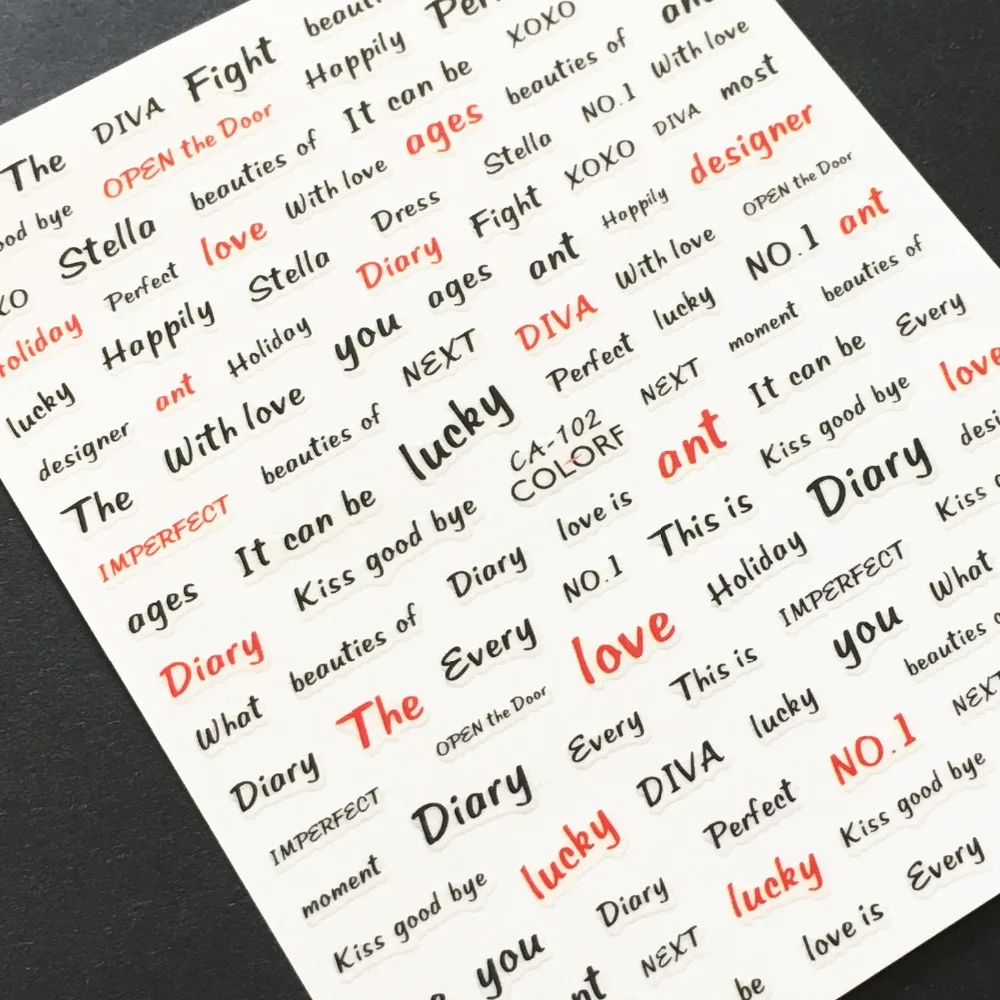 The DIVA Fight beauti
OPEN the Door Happily Per
beauties of It can be XOXO an
ood bye Stella love With love ages beauties of With love
XO Perfect Stella Dress Stella NO.1 most
Holiday Happily Diary Fight XOXO DIVA designer
lucky ant Holiday you ages ant Happily OPEN the Door
designer With love NEXT DIVA With love NO.1 ant
The beauties of lucky Perfect lucky moment beauties of
IMPERFECT It can be CA-102 NEXT It can be Every
COLORF
ages Kiss good bye love is ant Kiss good bye love
Diary beauties of Diary NO.1 This is Diary desi
What The Every love Holiday IMPERFECT Kiss g
Diary OPEN the Door Every This is you What
IMPERFECT Diary DIVA lucky beauties o
moment lucky Perfect NO.1 NEXT
Kiss good bye Diary lucky Kiss good bye
you NEXT love is Every
nt be